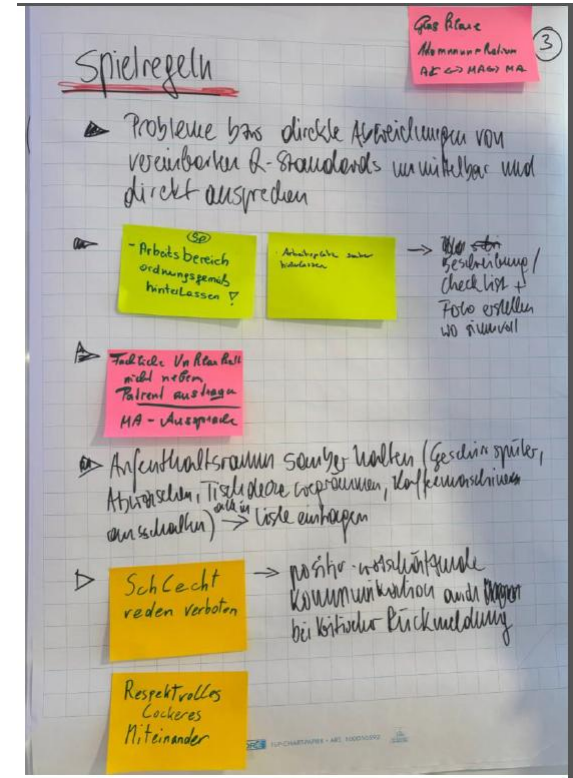 Spielregeln
Glas klare
Kommunikation
AE <-> MA <-> MA
3
Probleme bzw direkte Abweichungen von
vereinbarten Q-Standards unmittelbar und
direkt ansprechen
SP
- Arbeitsbereich
ordnungsgemäß
hinterlassen !
- Arbeitsplatz sauber
hinterlassen
→
Beschreibung/
Checklist +
Foto erstellen
wo sinnvoll
Fachliche Unklarheit
nicht neben
Patient austragen
MA - Aussprache
Aufenthaltsraum sauber halten (Geschirrspüler,
Abwaschen, Tischdecke wegräumen, Kaffeemaschinen
ausschalten) → auch in Liste eintragen
Schlecht
reden verboten
→ positiv-wertschätzende
Kommunikation auch
bei kritischer Rückmeldung
Respektvolles
Lockeres
Miteinander